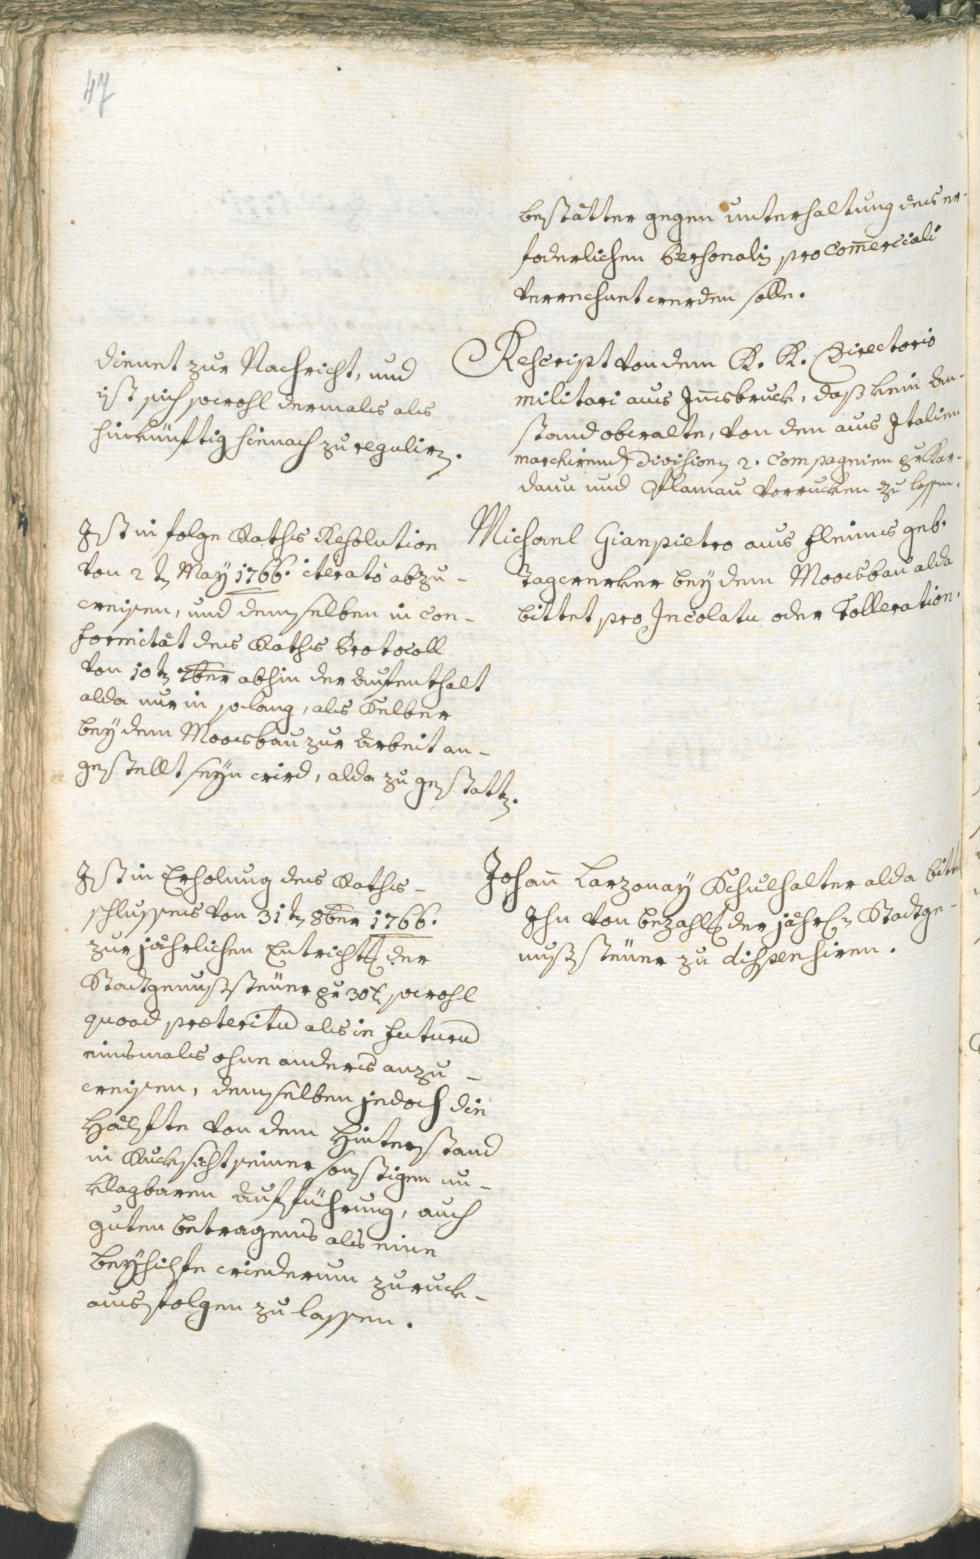 47
bestätter gegen unterhaltung des er-
foderlichen Personalis pro Com̄erciali
verrechnet werden solle.
dienet zur Nachricht, und
ist sich sowohl dermals als
hinkünftig hienach zu regulirn.
Rescript von dem K. K. Directorio
militari aus Jn̄sbruck, daß kein An-
stand obwalte, von den aus Italien
marchirend Divisionen 2. Compagnien zu Kar-
daun und Blumau vorrucken zu lassen.
Jst in folge Raths Resolution
von 2ten May 1766. iterato abzu-
weisen, und demselben in Con-
formitæt des Raths Protocoll
von 10ten 7ber abhin der Aufenthalt
alda nur in solang, als Selber
bey dem Moosbau zur Arbeit an-
gestellt seyn wird, alda zu gestatten.
Michael Gianpietro aus Fleims geb.
Tagwerker bey dem Moosbau alda
bittet pro Incolatu oder Tolleration.
Jst in Erholung des Raths-
schlusses von 31ten 8ber 1766.
zur jährlichen Entricht der
Stadtgenußsteuer pr 30 sowohl
quoad præteritū als in futurū
einsmals ohne anders anzu-
weisen, demselben jedoch die
Hälfte von dem Hinterstand
in Rucksicht seiner sonstigen un-
klagbaren Aufführung, auch
guten betragens als eine
Beyhilfe wiederum zuruck-
ausfolgen zu lassen.
Johan̄ Larzonaÿ Schulhalter alda bitt
Jhn von bezahlg der jährln Stadtge-
nußsteuer zu dispensiren.